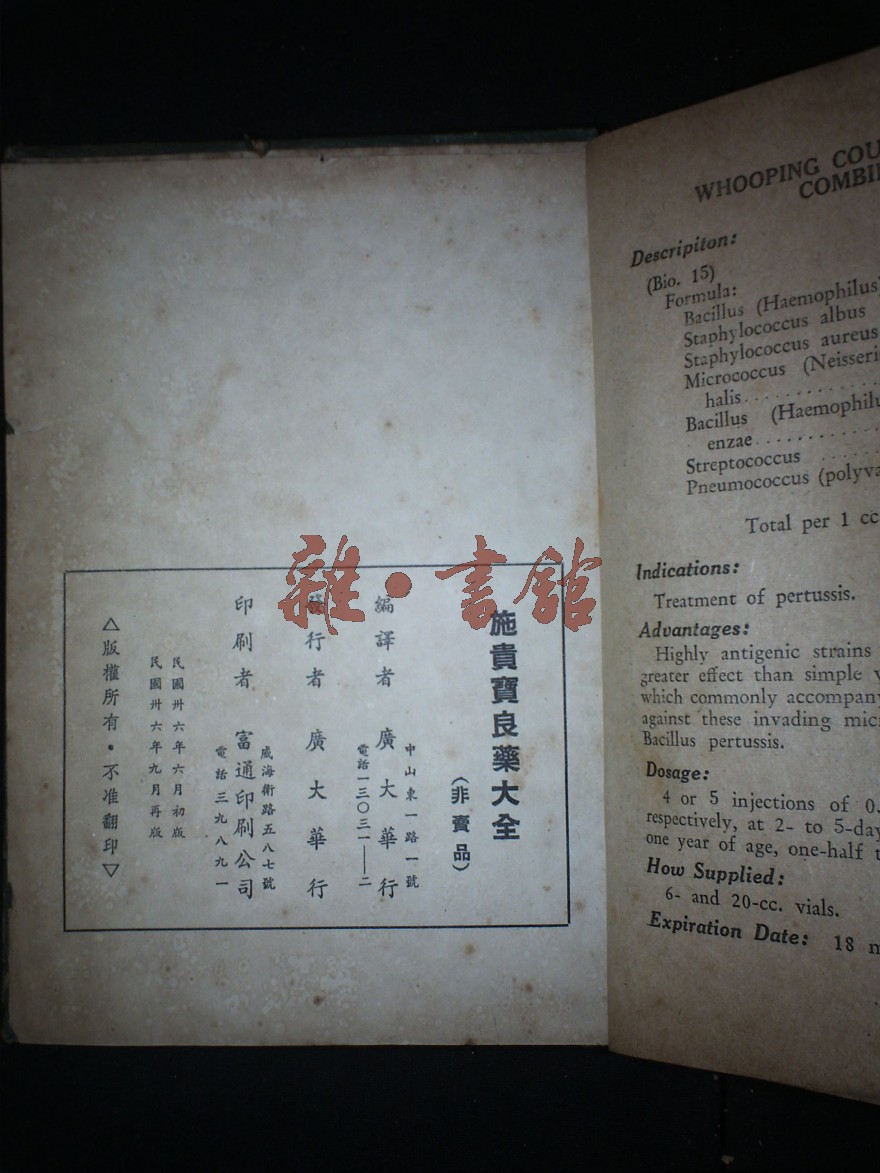 施貴寶良藥大全
（非賣品）
編譯者　廣大華行
中山東一路一號
電話一三〇三一——二
發行者　廣大華行
印刷者　富通印刷公司
威海衛路五八七號
電話三九八九一
民國卅六年六月初版
民國卅六年九月再版
△版權所有·不准翻印▽
雜·書館
WHOOPING COU
COMBI
Descripiton:
(Bio. 15)
Formula:
Bacillus (Haemophilus)
Staphylococcus albus
Staphylococcus aureus
Micrococcus (Neisseri
halis
Bacillus (Haemophilu
enzae
Streptococcus
Pneumococcus (polyva
Total per 1 cc
Indications:
Treatment of pertussis.
Advantages:
Highly antigenic strains
greater effect than simple v
which commonly accompany
against these invading mic
Bacillus pertussis.
Dosage:
4 or 5 injections of 0.
respectively, at 2- to 5-day
one year of age, one-half t
How Supplied:
6- and 20-cc. vials.
Expiration Date: 18 m